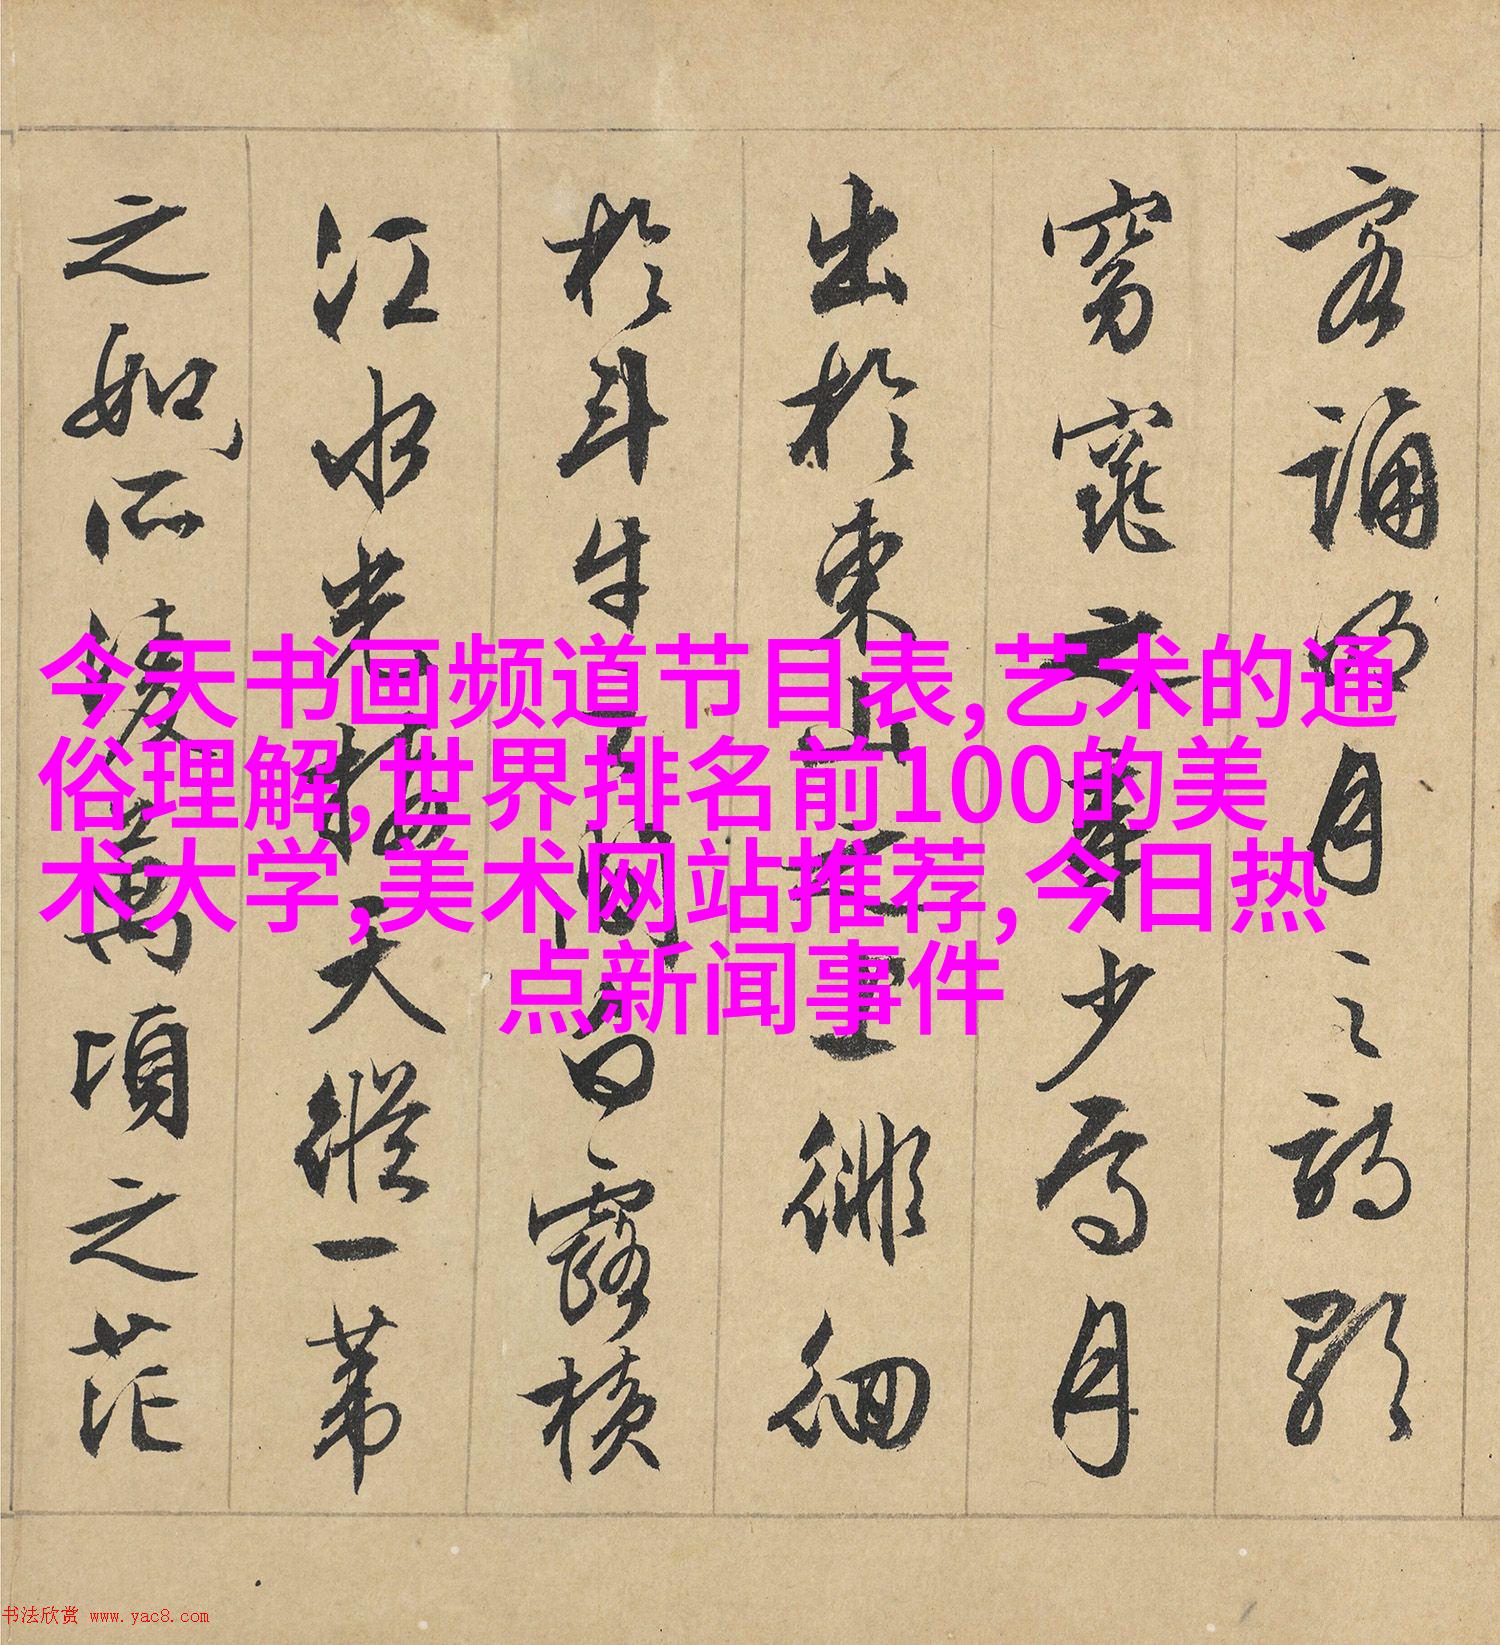 客誦明月之詩歌
窈窕之章少焉月
出於東山之上徘徊
於斗牛之間白露橫
江水光接天縱一葦
之如所凌萬頃之茫
今天书画频道节目表,艺术的通
俗理解,世界排名前100的美
术大学,美术网站推荐,今日热
点新闻事件
书法欣赏 www.yac8.com